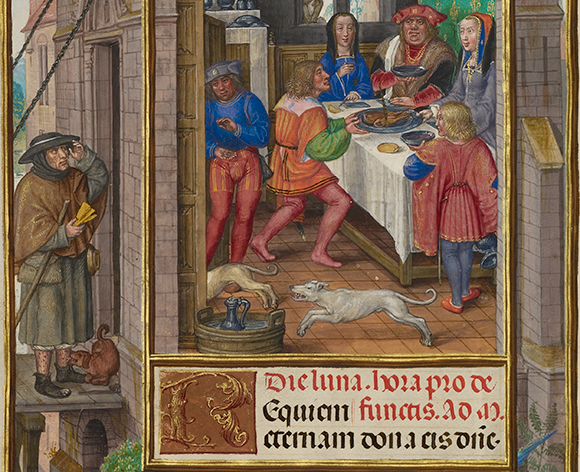 Die lune. hora pro de
REquiem functis. Ad M.
eternam dona eis dn̄e.